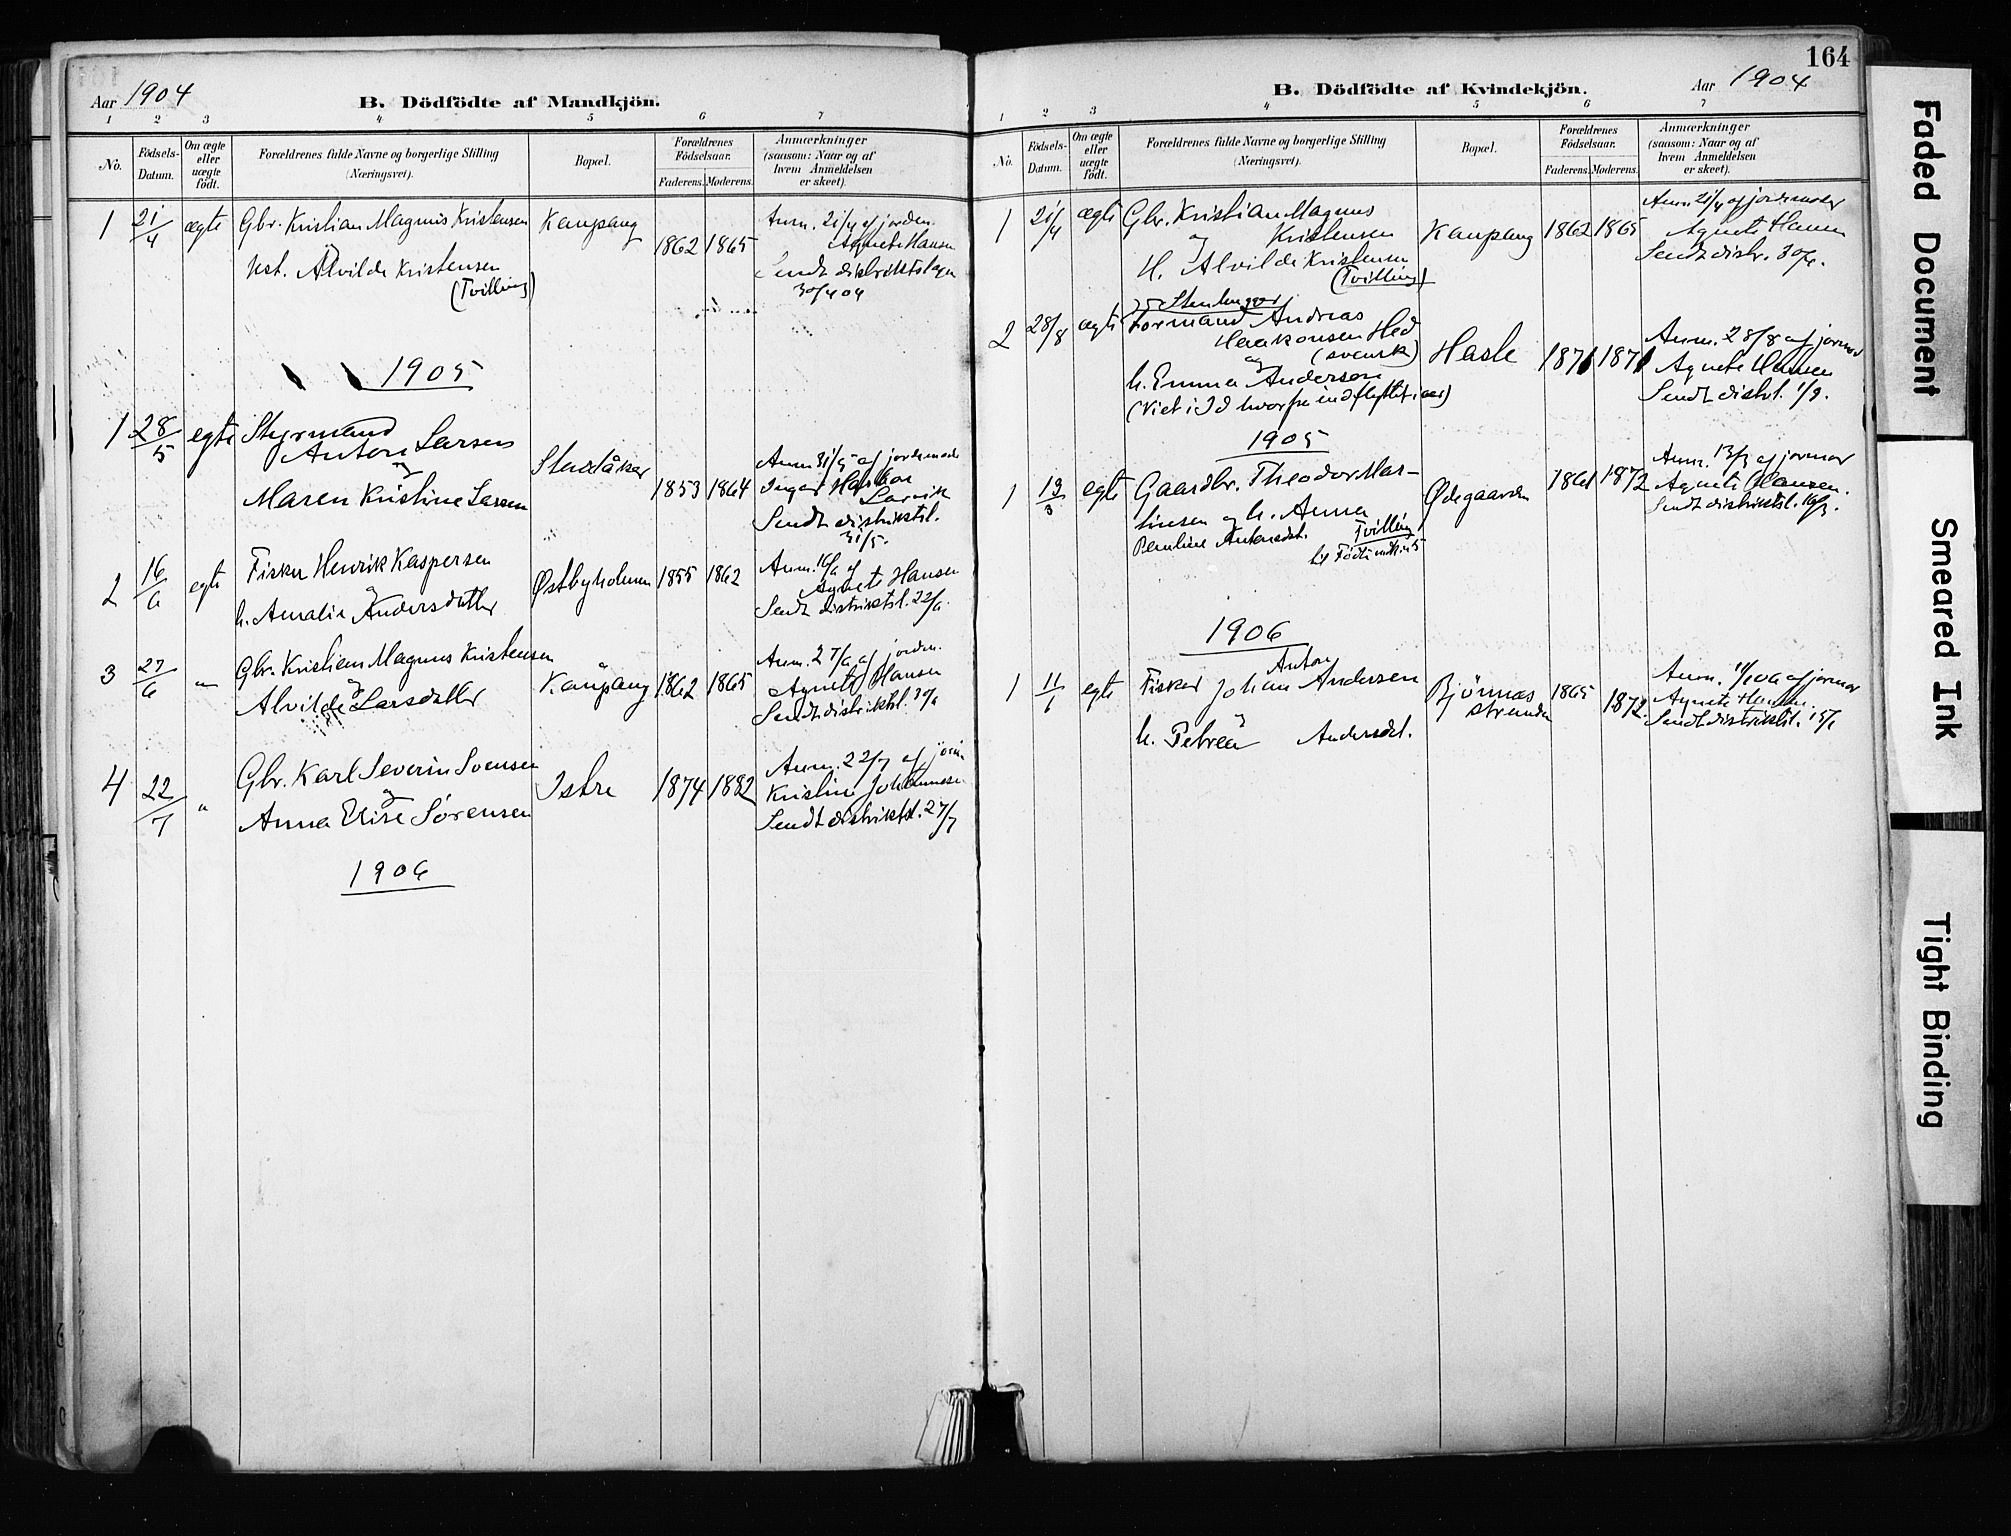 Aar 1904
B. Dödfödte af Mandkjön.
1 2 3 4 5 6 7
No.
Födsels-
Datum.
Om ægte
eller
uægte
födt.
Forældrenes fulde Navne og borgerlige Stilling
(Næringsvei).
Bopæl.
Forældrenes
Födselsaar.
Faderens. Moderens.
Anmærkninger
(saasom: Naar og af
hvem Anmeldelsen
er skeet).
1 21/4 ægte Gbr. Kristian Magnus Kristensen Kaupang 1862 1865 Anm. 21/4 af jordm.
Agnete Hansen
Hst. Alvilde Kristensen
(Tvilling)
Sendt distriktslægen
30/4 04
1905
1 28/5 egte Styrmand
Anton Larsen
og
Maren Kristine Larsen
1853 1864
Anm. 31/5 af jordemoder
Larvik
Sendt distriktsl.
31/5.
2 16/6 egte Fisker Henrik Kaspersen
og
h. Amalie Andersdatter
Østbyholmen 1855 1862
Anm. 16/6 af
Agnete Hansen
Sendt distriktsl. 22/6.
3 27/6 " Gbr. Kristian Magnus Kristensen
og
Alvilde Larsdatter
Kaupang 1862 1865
Anm. 27/6 af jordm.
Agnete Hansen
Sendt distriktsl. 30/6
4 22/7 " Gbr. Karl Severin Svensen
og
Anna Elise Sørensen
Istre 1874 1882
Anm. 22/7 af jorm.
Kristine Johannesen
Sendt distriktsl. 27/7
1906
164
B. Dödfödte af Kvindekjön.
Aar 1904
1 2 3 4 5 6 7
No.
Födsels-
Datum.
Om ægte
eller
uægte
födt.
Forældrenes fulde Navne og borgerlige Stilling
(Næringsvei).
Bopæl.
Forældrenes
Födselsaar.
Faderens. Moderens.
Anmærkninger
(saasom: Naar og af
hvem Anmeldelsen
er skeet).
1 21/4 ægte Gbr. Kristian Magnus
og Kristensen
H. Alvilde Kristensen
(Tvilling)
Kaupang 1862 1865
Anm. 21/4 af jordemoder
Agnete Hansen
Sendt distr. 30/4.
2 28/8 ægte Stenhugger
Formand Andreas
Haakonsen Hed
(svensk)
og
h. Emma Anderson
(Viet i Id hvorfra indflyttet i aar)
Hasle 1871 1871
Anm. 28/8 af jormor
Agnete Hansen
Sendt distrl. 1/9.
1905
1 13/3 egte Gaardbr. Theodor Mar-
tinsen og h. Anna
Pauline Antonsdt.
Tvilling
Ødegaarden 1861 1872
Anm. 13/3 af jormor
Agnete Hansen.
Sendt distriktsl. 16/3.
1906
1 11/1 egte Fisker Johan Anton Andersen
og
h. Petrea Andersdt.
Bjönnes
stranden
1865 1872
Anm. af jormor
Agnete Hansen.
Sendt distriktsl. 15/1
Faded Document
Smeared Ink
Tight Binding